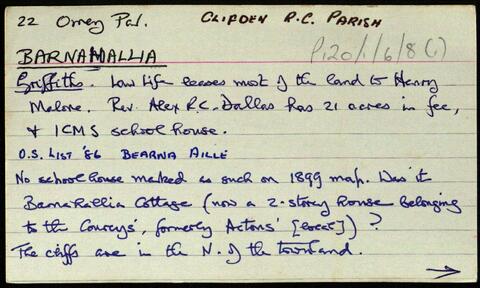 22 Omey Par. CLIFDEN R.C. PARISH
P120/1/6/8(1)
BARNAHALLIA
Griffiths. Law Life leases most of the land to Henry
Malone. Rev. Alex R.C. Dallas has 21 acres in fee,
& ICMS school house.
O.S. LIST '86 BEARNA AILLE
No school house marked as such on 1899 map. Was it
Barnahallia Cottage (now a 2-storey house belonging
to the Conceys', formerly Actons' [local]) ?
The cliffs are in the N. of the townland.
→